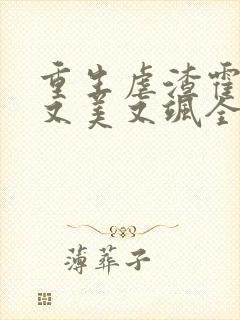 重生虐渣霍
又美又飒全
薄葬子